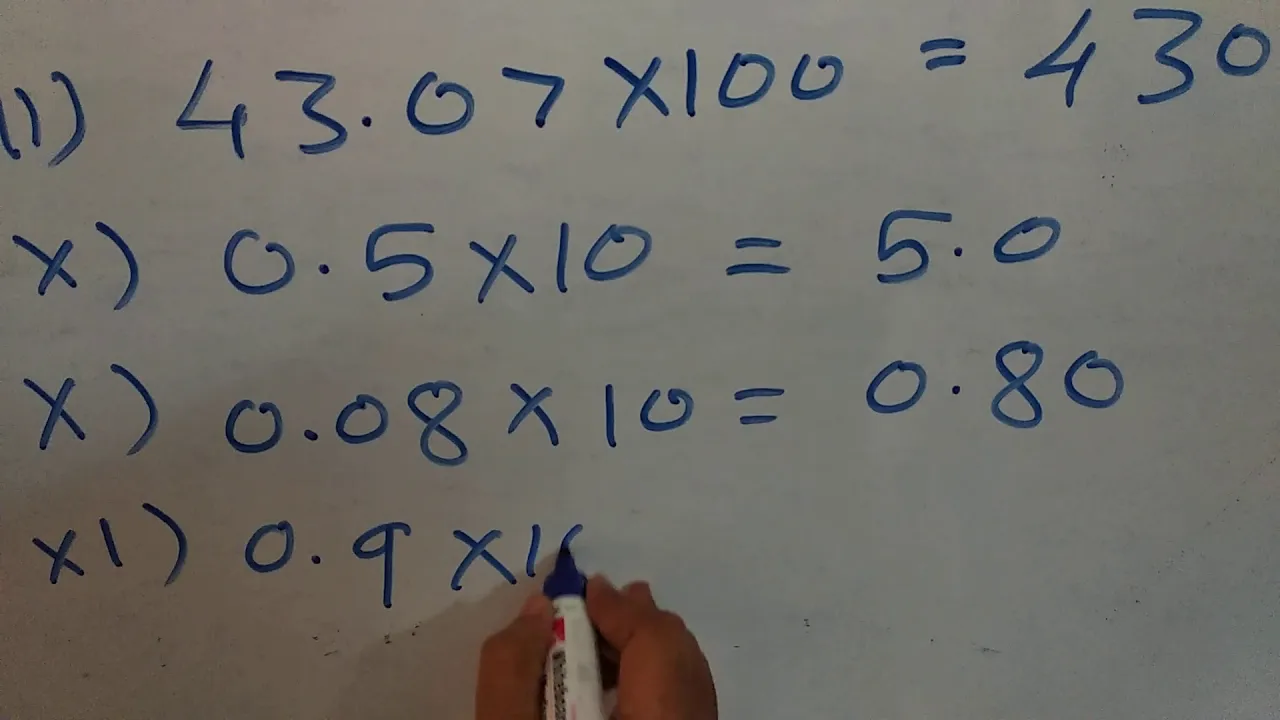 11) 43.07 x 100 = 430
x) 0.5 x 10 = 5.0
x) 0.08 x 10 = 0.80
x1) 0.9 x 1